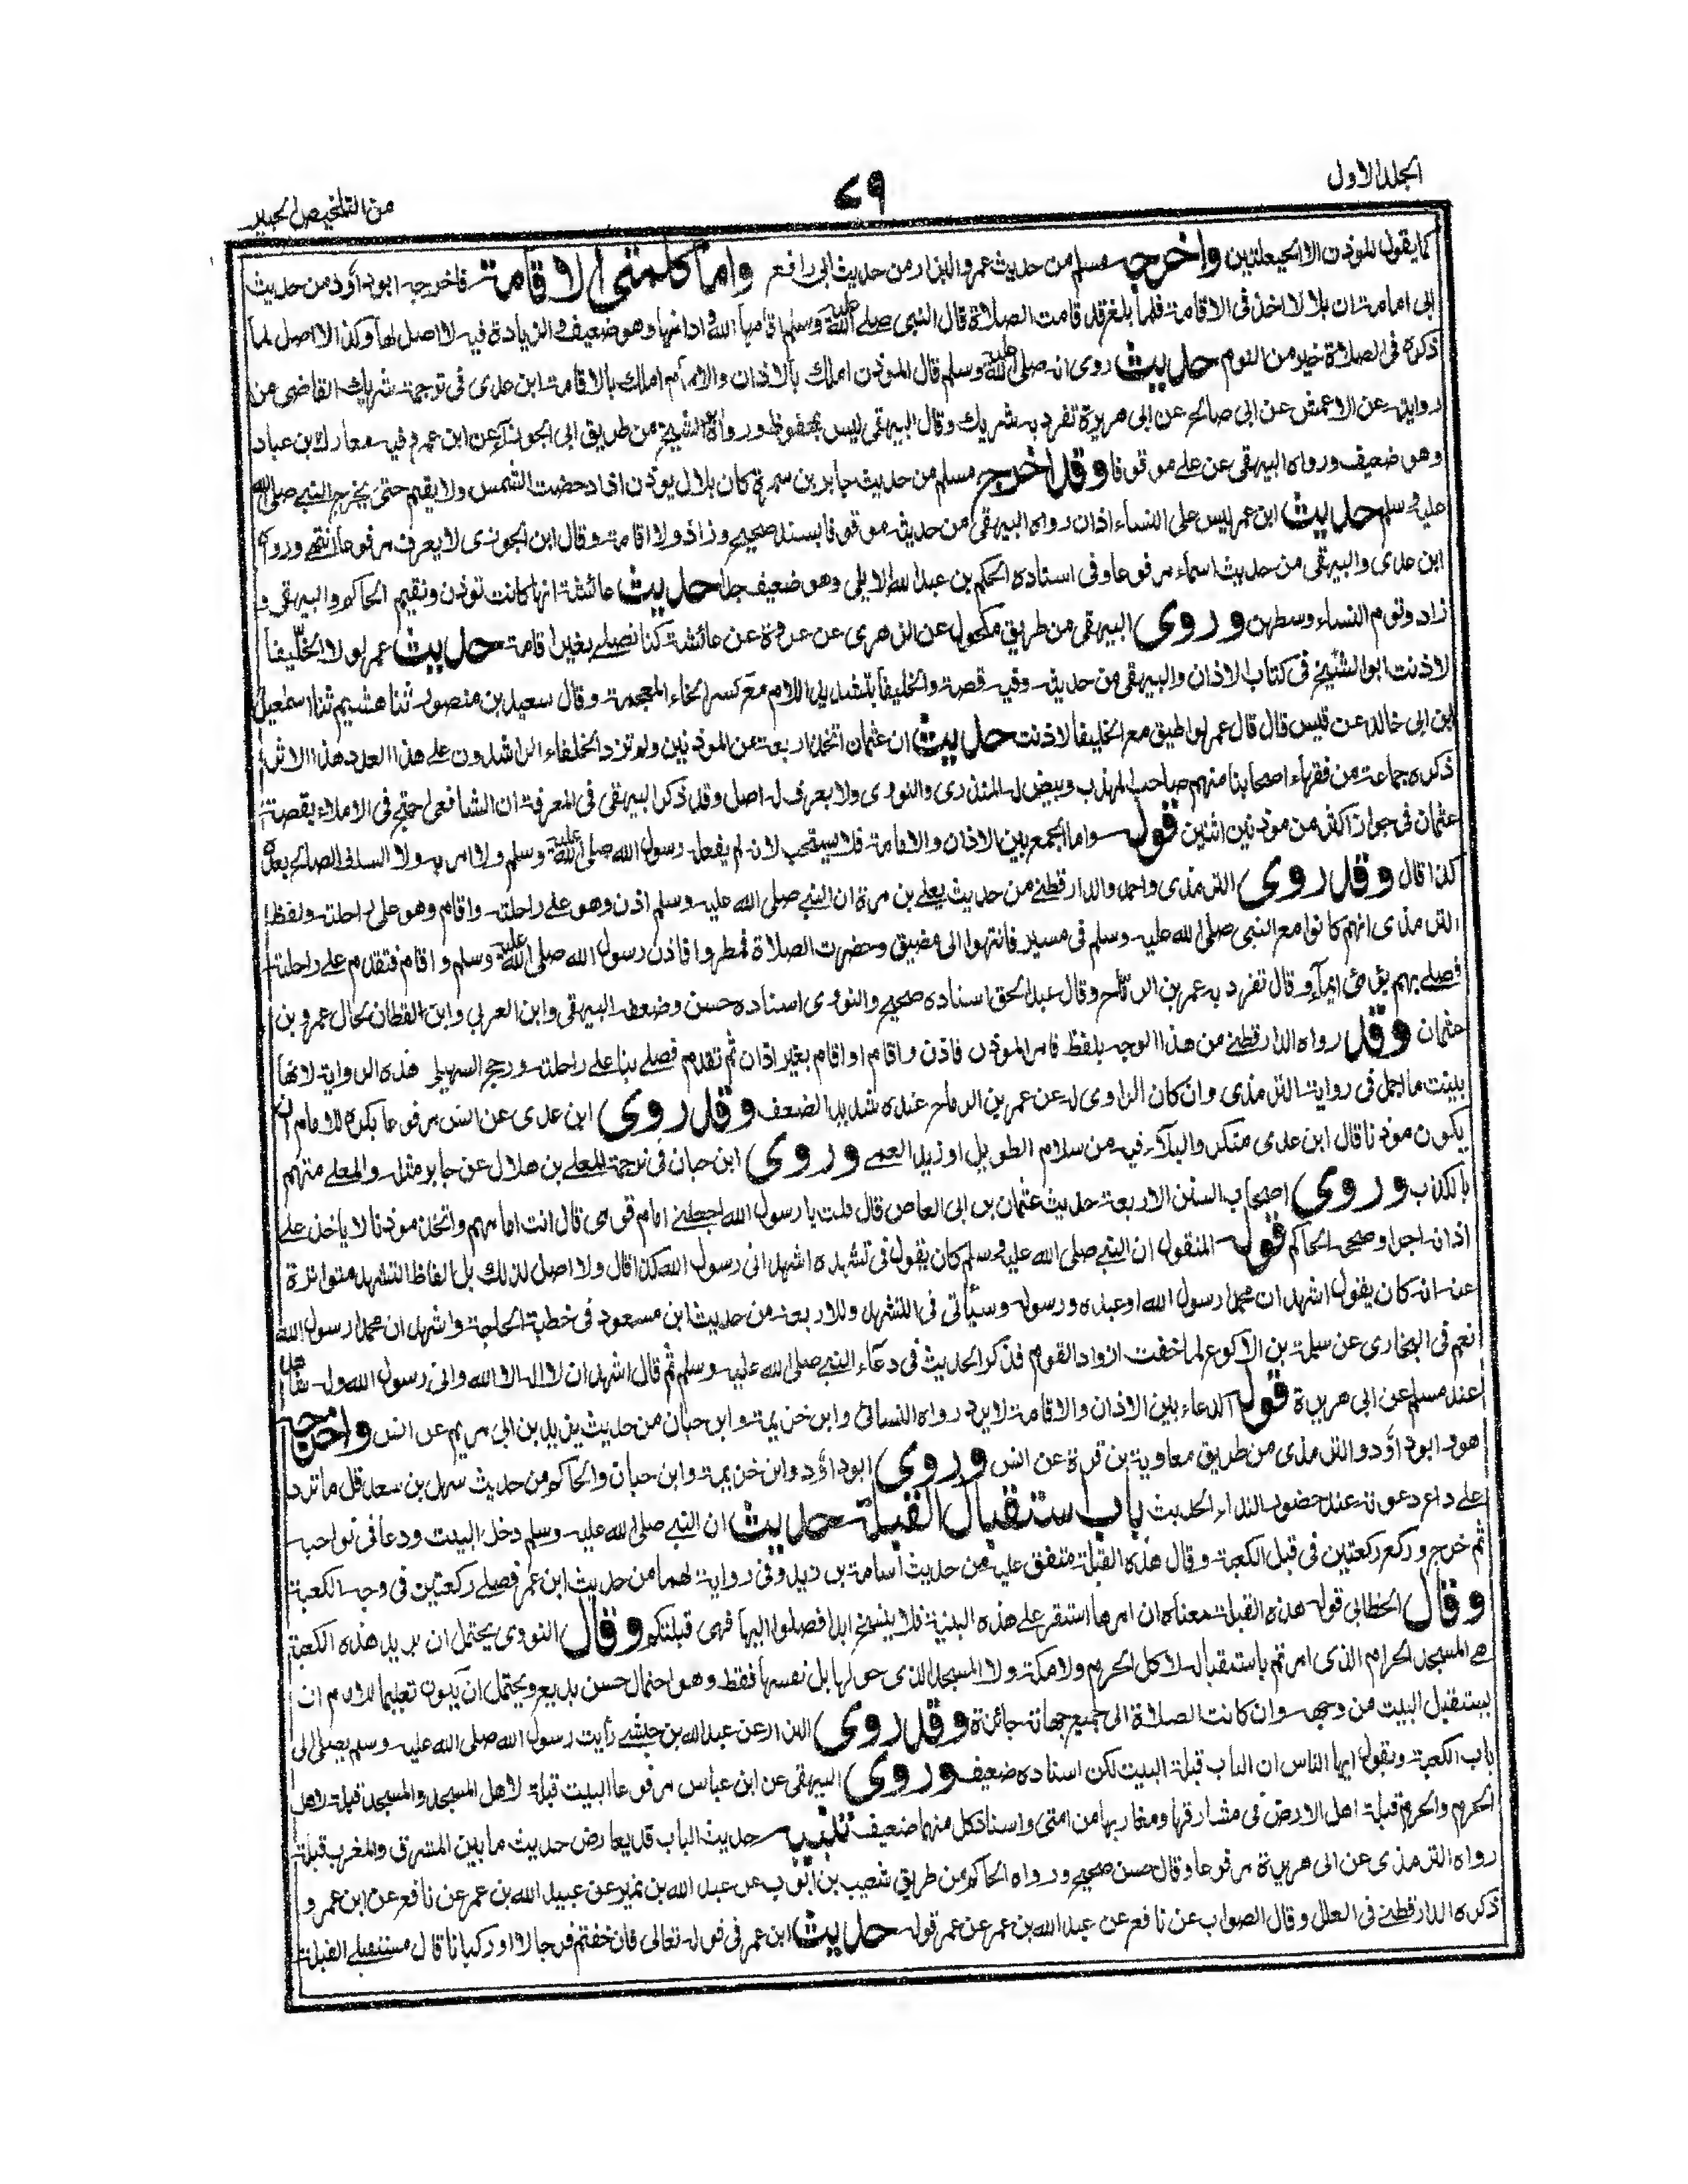 الجلد الاول
٧٩
من التلخيص الحبير
كما يقول المؤذن الا الحيعلتين واخرجه مسلم من حديث عمر والبزار من حديث ابى رافع واما كلمتى الاقامة فاخرجه ابو داؤد من حديث
ابى امامة ان بلالا اخذ فى الاقامة فلما بلغ قد قامت الصلاة قال النبى صلى الله عليه وسلم اقامها الله وادامها وهو ضعيف والزيادة فيه لا اصل لها وكذا لا اصل لما
ذكره فى الصلاة خير من النوم حديث روى انه صلى الله عليه وسلم قال المؤذن املك بالاذان والامام املك بالاقامة ابن عدى فى ترجمة شريك القاضى من
روايته عن الاعمش عن ابى صالح عن ابى هريرة تفرد به شريك وقال البيهقى ليس بمحفوظ ورواه ابو الشيخ من طريق ابى الجوزاء عن ابن عمر وفيه معارك بن عباد
وهو ضعيف ورواه البيهقى عن على موقوفا وقد اخرج مسلم من حديث جابر بن سمرة كان بلال يؤذن اذا دحضت الشمس ولا يقيم حتى يخرج النبى صلى الله
عليه وسلم حديث ابن عمر ليس على النساء اذان رواه البيهقى من حديثه موقوفا بسند صحيح وزاد ولا اقامة وقال ابن الجوزى لا يعرف مرفوعا انتهى ورواه
ابن عدى والبيهقى من حديث اسماء مرفوعا وفى اسناده الحكم بن عبد الله الايلى وهو ضعيف جدا حديث عائشة انها كانت تؤذن وتقيم الحاكم والبيهقى و
زاد وتؤم النساء وسطهن وروى البيهقى من طريق مكحول عن الزهرى عن عروة عن عائشة كنا نصلى بغير اقامة حديث عمر لولا الخليفا
لاذنت ابو الشيخ فى كتاب الاذان والبيهقى من حديثه وفيه قصة والخليفا بتشديد اللام مع كسر الخاء المعجمة وقال سعيد بن منصور ثنا هشيم ثنا اسمعيل
ابن ابى خالد عن قيس قال قال عمر لو اطيق مع الخليفا لاذنت حديث ان عثمان اتخذ اربعة من المؤذنين ولم تزد الخلفاء الراشدون على هذا العدد هذا الاثر
ذكره جماعة من فقهاء اصحابنا منهم صاحب المهذب وبيض له المنذرى والنووى ولا يعرف له اصل وقد ذكر البيهقى فى المعرفة ان الشافعى احتج فى الاملاء بقصة
عثمان فى جواز اكثر من مؤذنين اثنين قوله واما الجمع بين الاذان والاقامة فلا يستحب لانه لم يفعله رسول الله صلى الله عليه وسلم ولا امر به ولا السلف الصالح بعده
كذا قال وقد روى الترمذى واحمد والدارقطنى من حديث يعلى بن مرة ان النبى صلى الله عليه وسلم اذن وهو على راحلته واقام وهو على راحلته ولفظ
الترمذى انهم كانوا مع النبى صلى الله عليه وسلم فى مسير فانتهوا الى مضيق وحضرت الصلاة فمطروا فاذن رسول الله صلى الله عليه وسلم واقام فتقدم على راحلته
فصلى بهم يؤمى ايماء وقال تفرد به عمر بن الرماح وقال عبد الحق اسناده صحيح والنووى اسناده حسن وضعفه البيهقى وابن العربى وابن القطان لحال عمرو بن
عثمان وقد رواه الدارقطنى من هذا الوجه بلفظ فامر المؤذن فاذن واقام او اقام بغير اذان ثم تقدم فصلى بنا على راحلته ورجح السهيلى هذه الرواية لانها
بينت ما اجمل فى رواية الترمذى وان كان الراوى له عن عمر بن الرماح عنده شديد الضعف وقد روى ابن عدى عن انس مرفوعا يكره للامام ان
يكون مؤذنا قال ابن عدى منكر والبلاء فيه من سلام الطويل او زيد العمى وروى ابن حبان فى ترجمة المعلى بن هلال عن جابر مثله والمعلى متهم
بالكذب وروى اصحاب السنن الاربعة حديث عثمان بن ابى العاص قال قلت يا رسول الله اجعلنى امام قومى قال انت امامهم واتخذ مؤذنا لا ياخذ على
اذانه اجرا وصححه الحاكم قوله المنقول ان النبى صلى الله عليه وسلم كان يقول فى تشهده اشهد انى رسول الله كذا قال ولا اصل لذلك بل الفاظ التشهد متواترة
عنه انه كان يقول اشهد ان محمدا رسول الله او عبده ورسوله وسيأتى فى التشهد وللاربعة من حديث ابن مسعود فى خطبة الحاجة واشهد ان محمدا رسول الله
نعم فى البخارى عن سلمة بن الاكوع لما خفت ازواد القوم فذكر الحديث فى دعاء النبى صلى الله عليه وسلم ثم قال اشهد ان لا اله الا الله وانى رسول الله وله شاهد
عند مسلم عن ابى هريرة قوله الدعاء بين الاذان والاقامة لا يرد رواه النسائى وابن خزيمة وابن حبان من حديث يزيد بن ابى مريم عن انس واخرجه
هو وابو داؤد والترمذى من طريق معاوية بن قرة عن انس وروى ابو داؤد وابن خزيمة وابن حبان والحاكم من حديث سهل بن سعد قل ما ترد
على داع دعوته عند حضور النداء الحديث باب استقبال القبلة حديث ان النبى صلى الله عليه وسلم دخل البيت ودعا فى نواحيه
ثم خرج وركع ركعتين فى قبل الكعبة وقال هذه القبلة متفق عليه من حديث اسامة بن زيد وفى رواية لهما من حديث ابن عمر فصلى ركعتين فى وجه الكعبة
وقال الخطابى قوله هذه القبلة معناه ان امرها استقر على هذه البنية فلا ينسخ ابدا فصلوا اليها فهى قبلتكم وقال النووى يحتمل ان يريد هذه الكعبة
هى المسجد الحرام الذى امرتم باستقباله لا كل الحرم ولا مكة ولا المسجد الذى حولها بل نفسها فقط وهو احتمال حسن بديع ويحتمل ان يكون تعليما للامام ان
يستقبل البيت من وجهه وان كانت الصلاة الى جميع جهاته جائزة وقد روى البزار عن عبد الله بن حبشى رأيت رسول الله صلى الله عليه وسلم يصلى الى
باب الكعبة ويقول ايها الناس ان الباب قبلة البيت لكن اسناده ضعيف وروى البيهقى عن ابن عباس مرفوعا البيت قبلة لاهل المسجد والمسجد قبلة لاهل
الحرم والحرم قبلة اهل الارض فى مشارقها ومغاربها من امتى واسناد كل منهما ضعيف تنبيه حديث الباب قد يعارض حديث ما بين المشرق والمغرب قبلة
رواه الترمذى عن ابى هريرة مرفوعا وقال حسن صحيح ورواه الحاكم من طريق شعيب بن ايوب عن عبد الله بن نمير عن عبيد الله بن عمر عن نافع عن ابن عمر و
ذكره الدارقطنى فى العلل وقال الصواب عن نافع عن عبد الله بن عمر عن عمر قوله حديث ابن عمر فى قوله تعالى فان خفتم فرجالا او ركبانا قال مستقبلى القبلة